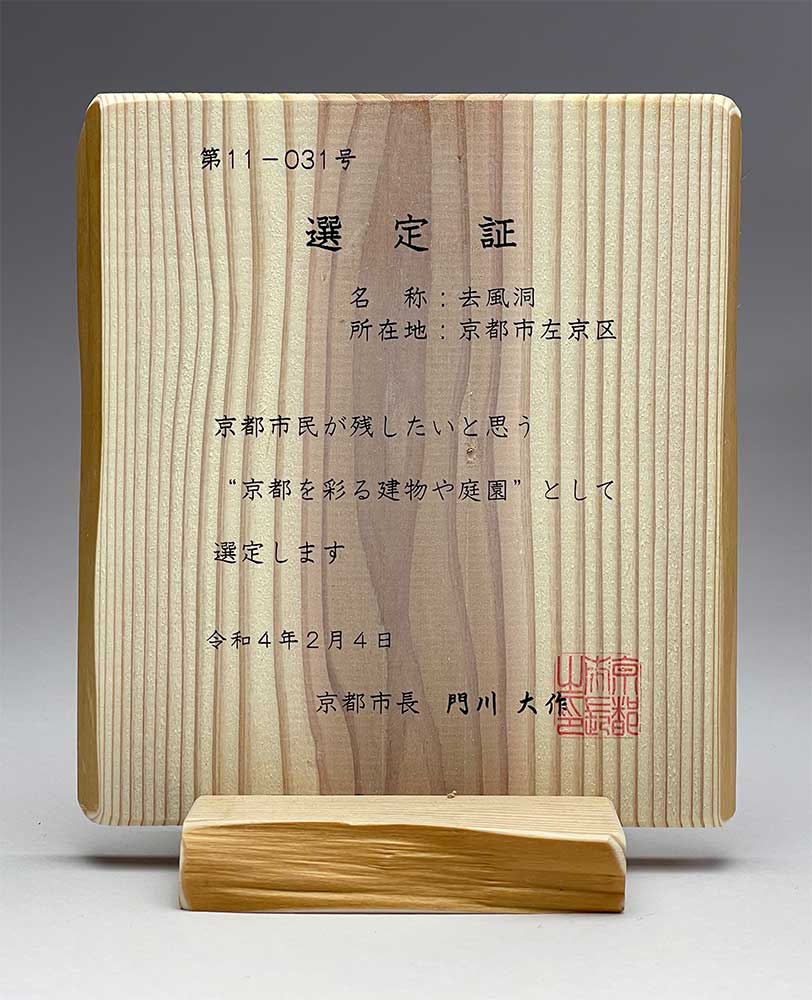 第11－031号
選定証
名　称：去風洞
所在地：京都市左京区
京都市民が残したいと思う
“京都を彩る建物や庭園”として
選定します
令和4年2月4日
京都市長　門川 大作
京都市長之印